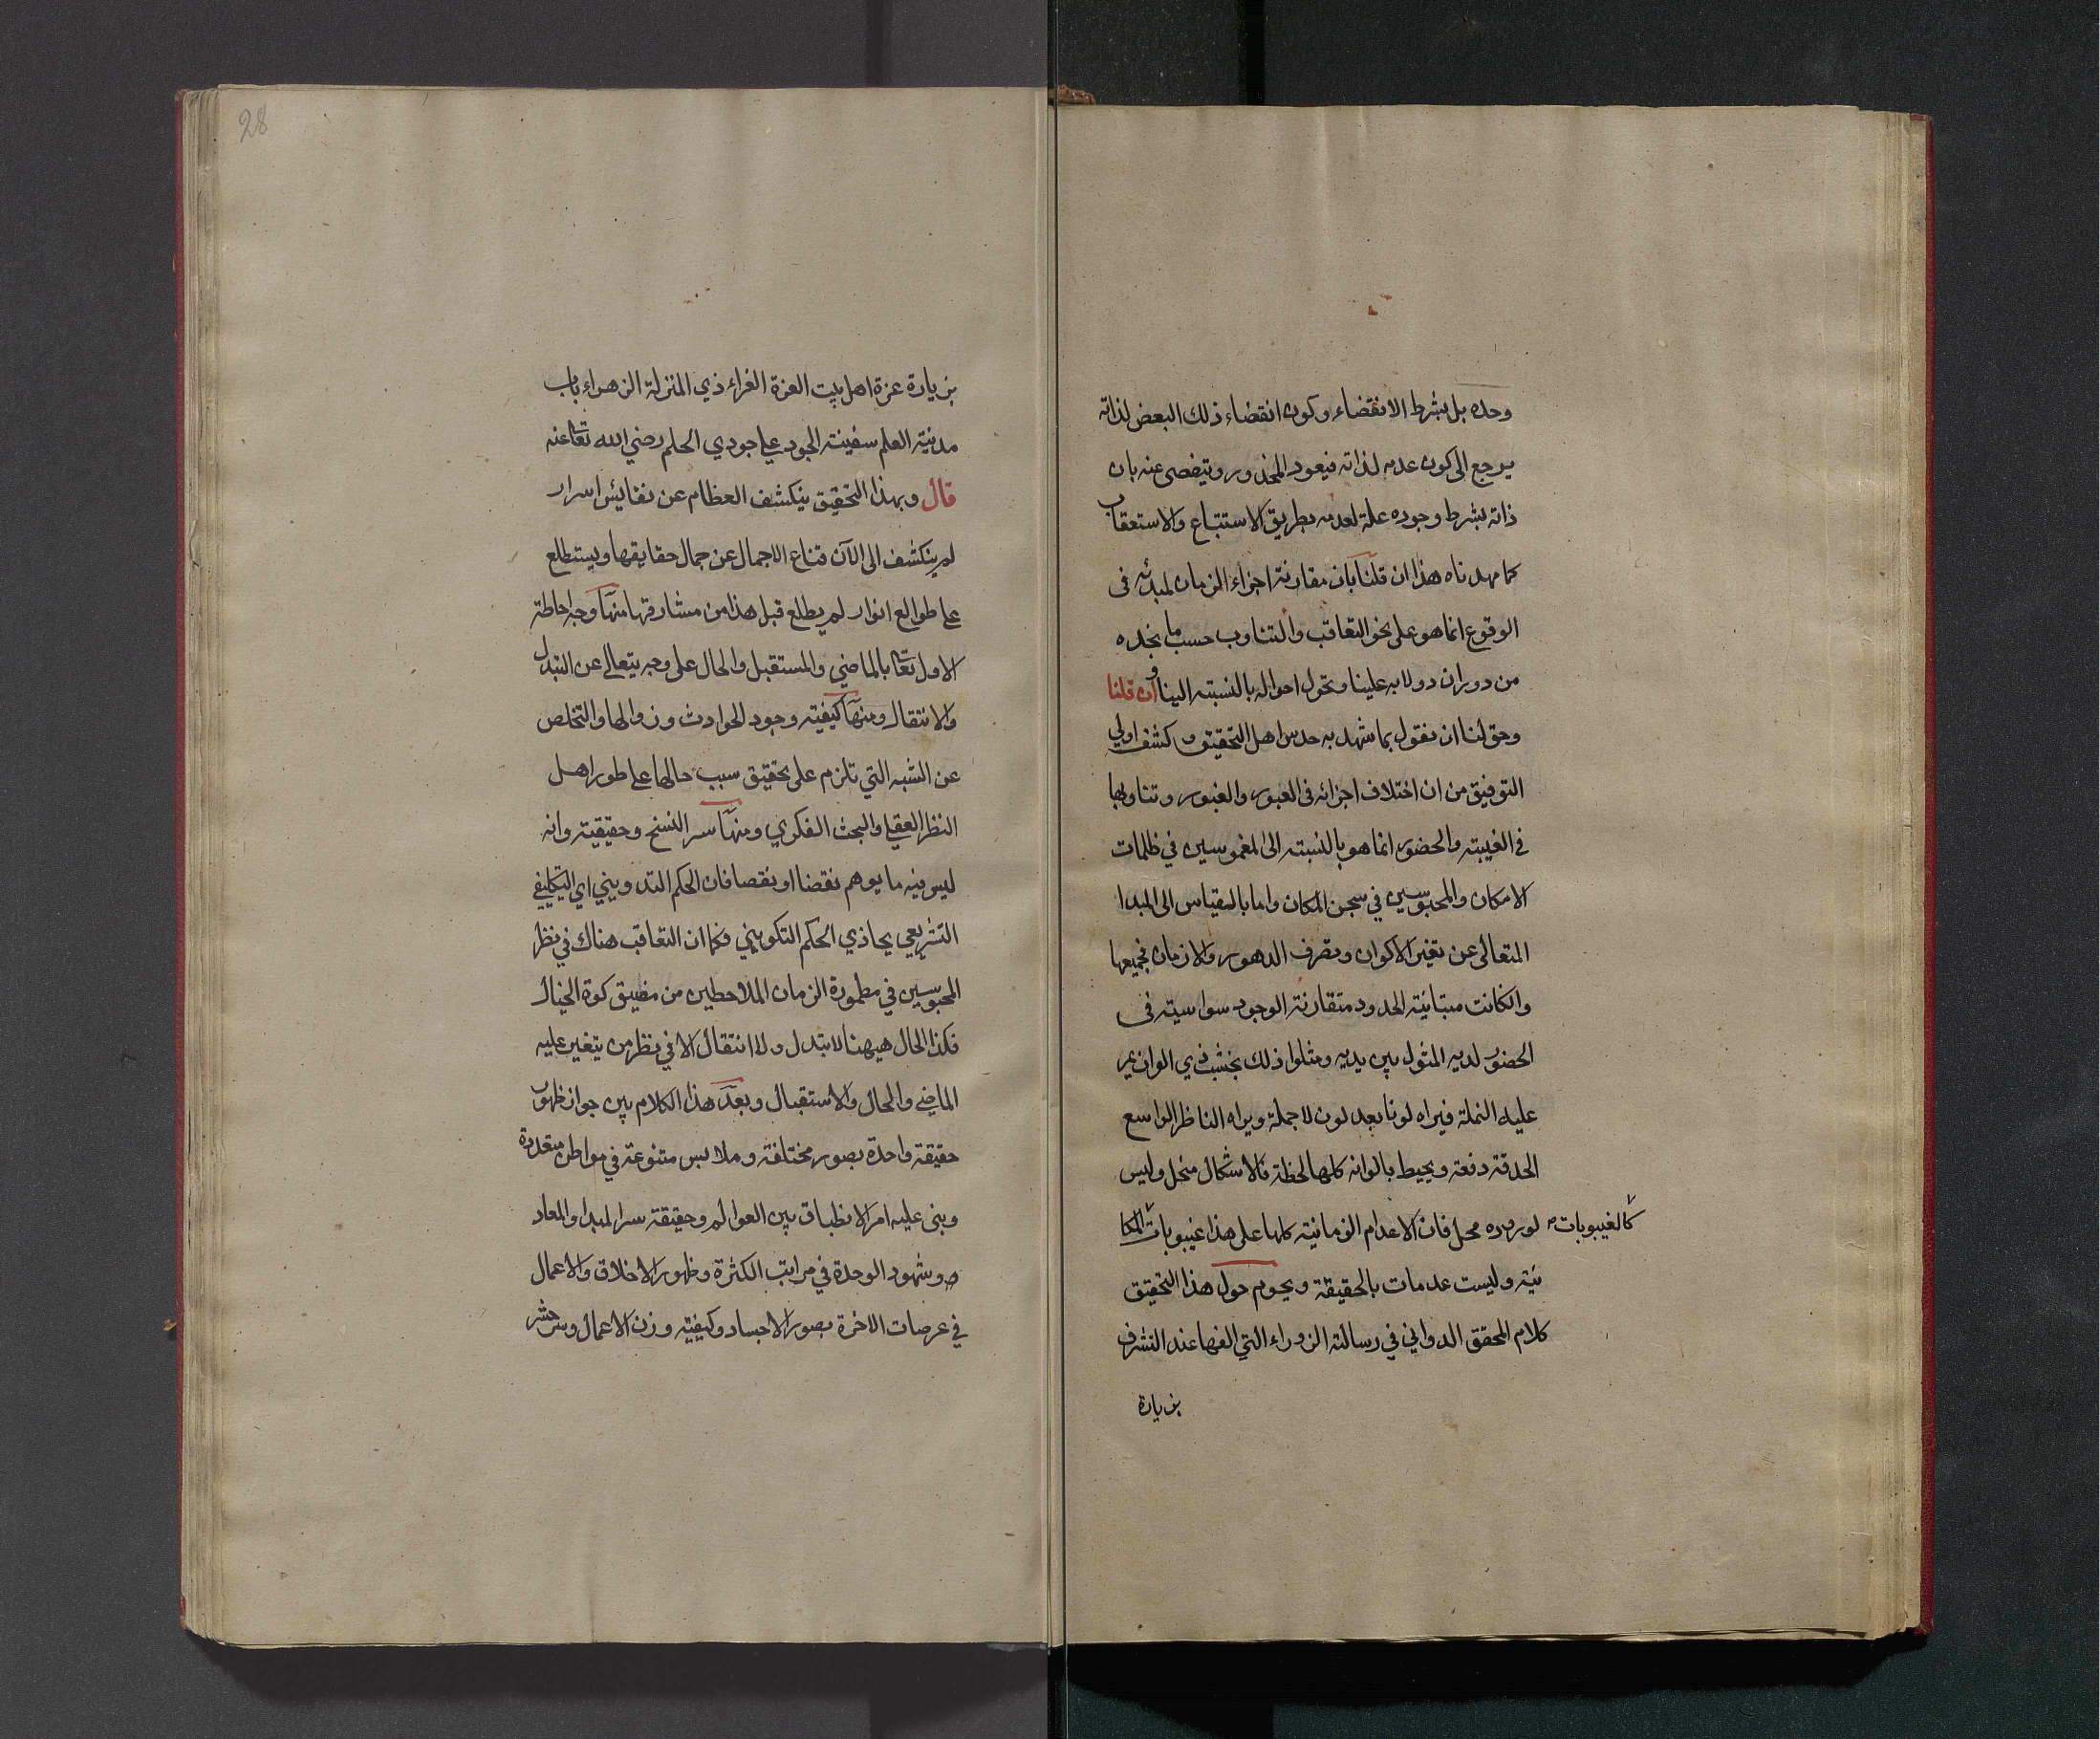 وحده بل بشرط الانقضاء وكون انقضاء ذلك البعض لذاته
يرجع الى كون عدمه لذاته فيعود المحذور ويتفصى عنه بان
ذاته بشرط وجوده علة لعدمه بطريق الاستتباع والاستعقاب
كما مهدناه هذا ان قلنا بان مقارنة اجزاء الزمان لمبدئه فى
الوقوع انما هو على نحو التعاقب والتناوب حسب ما نجده
من دوران دولابه علينا وتحول احواله بالنسبته الينا وان قلنا
وحق لنا ان نقول بما شهد به حدس اهل التحقيق و كشف اولي
التوفيق من ان اختلاف اجزائه فى العبور والغبور وتناوبها
في الغيبته والحضور انما هو بالنسبته الى المغموسين في ظلمات
الامكان والمحبوسين في سجن المكان واما بالمقياس الى المبدا
المتعالى عن تغير الاكوان وتصرف الدهور والازمان فجميعها
والكانت متبائنة الحدود متقارنة الوجود سواسيته فى
الحضور لديه المثول بين يديه ومثلوا ذلك بخشبة ذي الوان يمر
عليه النملة فيراه لونا بعد لون لا جملة ويراه الناظر الواسع
الحدقة دفعة ويحيط بالوانه كلها لحظة فالاشكال منحل وليس
لوروده محل فان الاعدام الزمانيته كلها على هذا غيبوبات المكا
كالغيبوبات
نية وليست عدمات بالحقيقة ويحوم حول هذا التحقيق
كلام المحقق الدواني في رسالته الزوراء التي الفها عند التشرف
بزيارة
28
بزيارة عزة اهل بيت العزة الغراء ذي المنزلة الزهراء باب
مدنية العلم سفينة الجود على جودي الحلم رضي الله تعا عنه
قال وبهذا التحقيق ينكشف العظام عن نفايس اسرار
لم ينكشف الى الآن قناع الاجمال عن جمال حقايقها ويستطلع
على طوالع انوار لم يطلع قبل هذا من مشارقها منها وجه احاطة
الاول تعا بالماضي والمستقبل والحال على وجه يتعالى عن التبدل
والانتقال ومنها كيفيته وجود الحوادث وزوالها والتخلص
عن الشبه التي تلزم على تحقيق سبب حالها على طور اهل
النظر العقلي والبحث الفكري ومنها سر النسخ وحقيقيته وانه
ليس فيه ما يوهم نقضا او نقصا فان الحكم التدويني اي التكليفي
التشريعي يحاذي الحكم التكويني فكما ان التعاقب هناك في نظر
المحبوسين في مطمورة الزمان الملاحظين من مضيق كوة الخيال
فكذا الحال هيهنا لا تبدل ولا انتقال الا في نظر من يتغير عليه
الماضي والحال والاستقبال وبعد هذا الكلام بين جواز ظهور
حقيقة واحدة بصور مختلفة وملابس متنوعة في مواطن متعددة
وبنى عليه امر الانطباق بين العوالم وحقيقة سر المبدا والمعاد
وشهود الوحدة في مراتب الكثرة وظهور الاخلاق والاعمال
في عرصات الاخرة بصور الاجساد وكيفيته وزن الاعمال وسر حشر